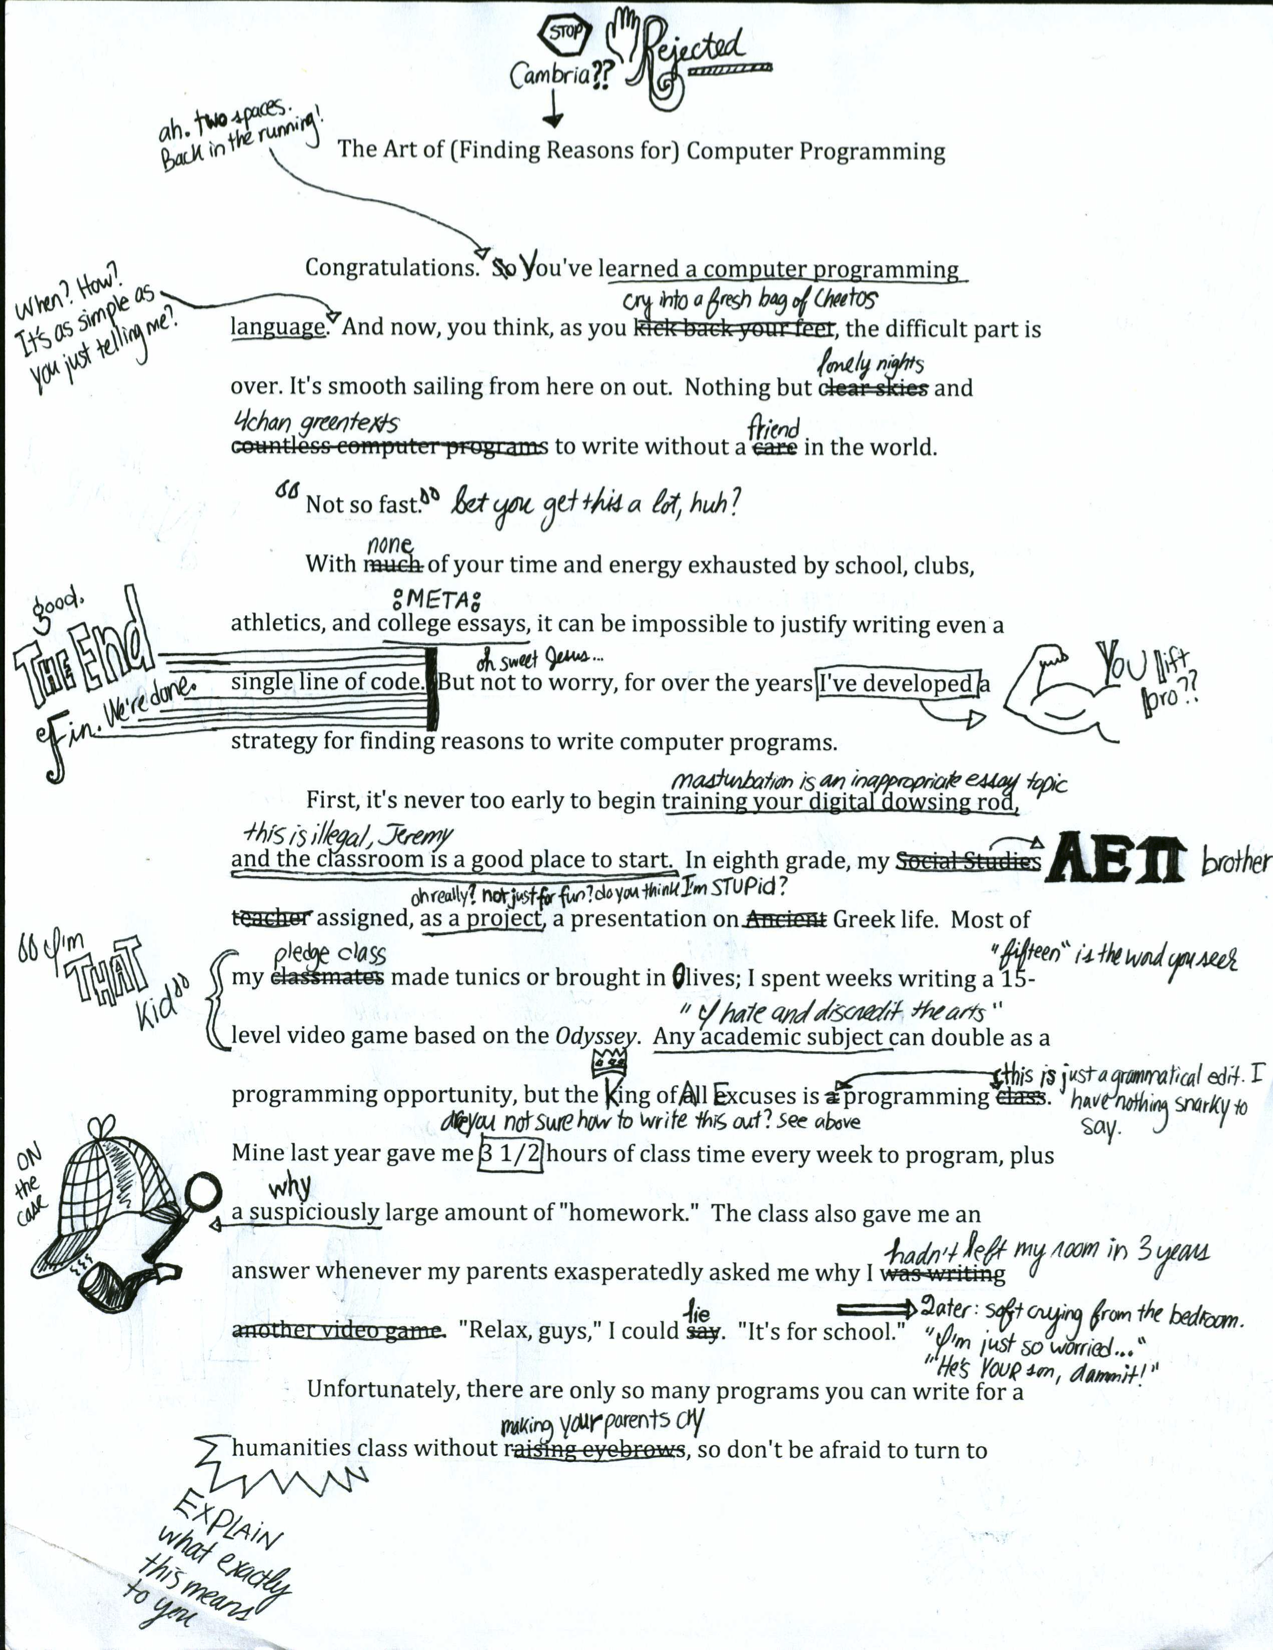 STOP
Rejected
Cambria??
ah. two spaces.
Back in the running!
The Art of (Finding Reasons for) Computer Programming
Congratulations. So You've learned a computer programming
When? How?
It's as simple as
you just telling me?
cry into a fresh bag of Cheetos
language. And now, you think, as you kick back your feet, the difficult part is
lonely nights
over. It's smooth sailing from here on out. Nothing but clear skies and
4chan greentexts
friend
countless computer programs to write without a care in the world.
"Not so fast." bet you get this a lot, huh?
none
With much of your time and energy exhausted by school, clubs,
:META:
athletics, and college essays, it can be impossible to justify writing even a
good.
THE End
Fin. We're done.
oh sweet Jesus...
single line of code. But not to worry, for over the years I've developed a
You lift
bro??
strategy for finding reasons to write computer programs.
masturbation is an inappropriate essay topic
First, it's never too early to begin training your digital dowsing rod,
this is illegal, Jeremy
and the classroom is a good place to start. In eighth grade, my Social Studies ΑΕΠ brother
oh really? not just for fun? do you think I'm STUPid?
teacher assigned, as a project, a presentation on Ancient Greek life. Most of
"I'm
THAT
Kid"
pledge class
"fifteen" is the word you seek
my classmates made tunics or brought in Olives; I spent weeks writing a 15-
"I hate and discredit the arts"
level video game based on the Odyssey. Any academic subject can double as a
programming opportunity, but the King of All Excuses is a programming class.
this is just a grammatical edit. I
have nothing snarky to
say.
are you not sure how to write this out? See above
Mine last year gave me 3 1/2 hours of class time every week to program, plus
ON
the
case
why
a suspiciously large amount of "homework." The class also gave me an
hadn't left my room in 3 years
answer whenever my parents exasperatedly asked me why I was writing
lie
another video game. "Relax, guys," I could say. "It's for school."
Later: soft crying from the bedroom.
"I'm just so worried..."
"He's YOUR son, dammit!"
Unfortunately, there are only so many programs you can write for a
making your parents cry
humanities class without raising eyebrows, so don't be afraid to turn to
EXPLAIN
what exactly
this means
to you